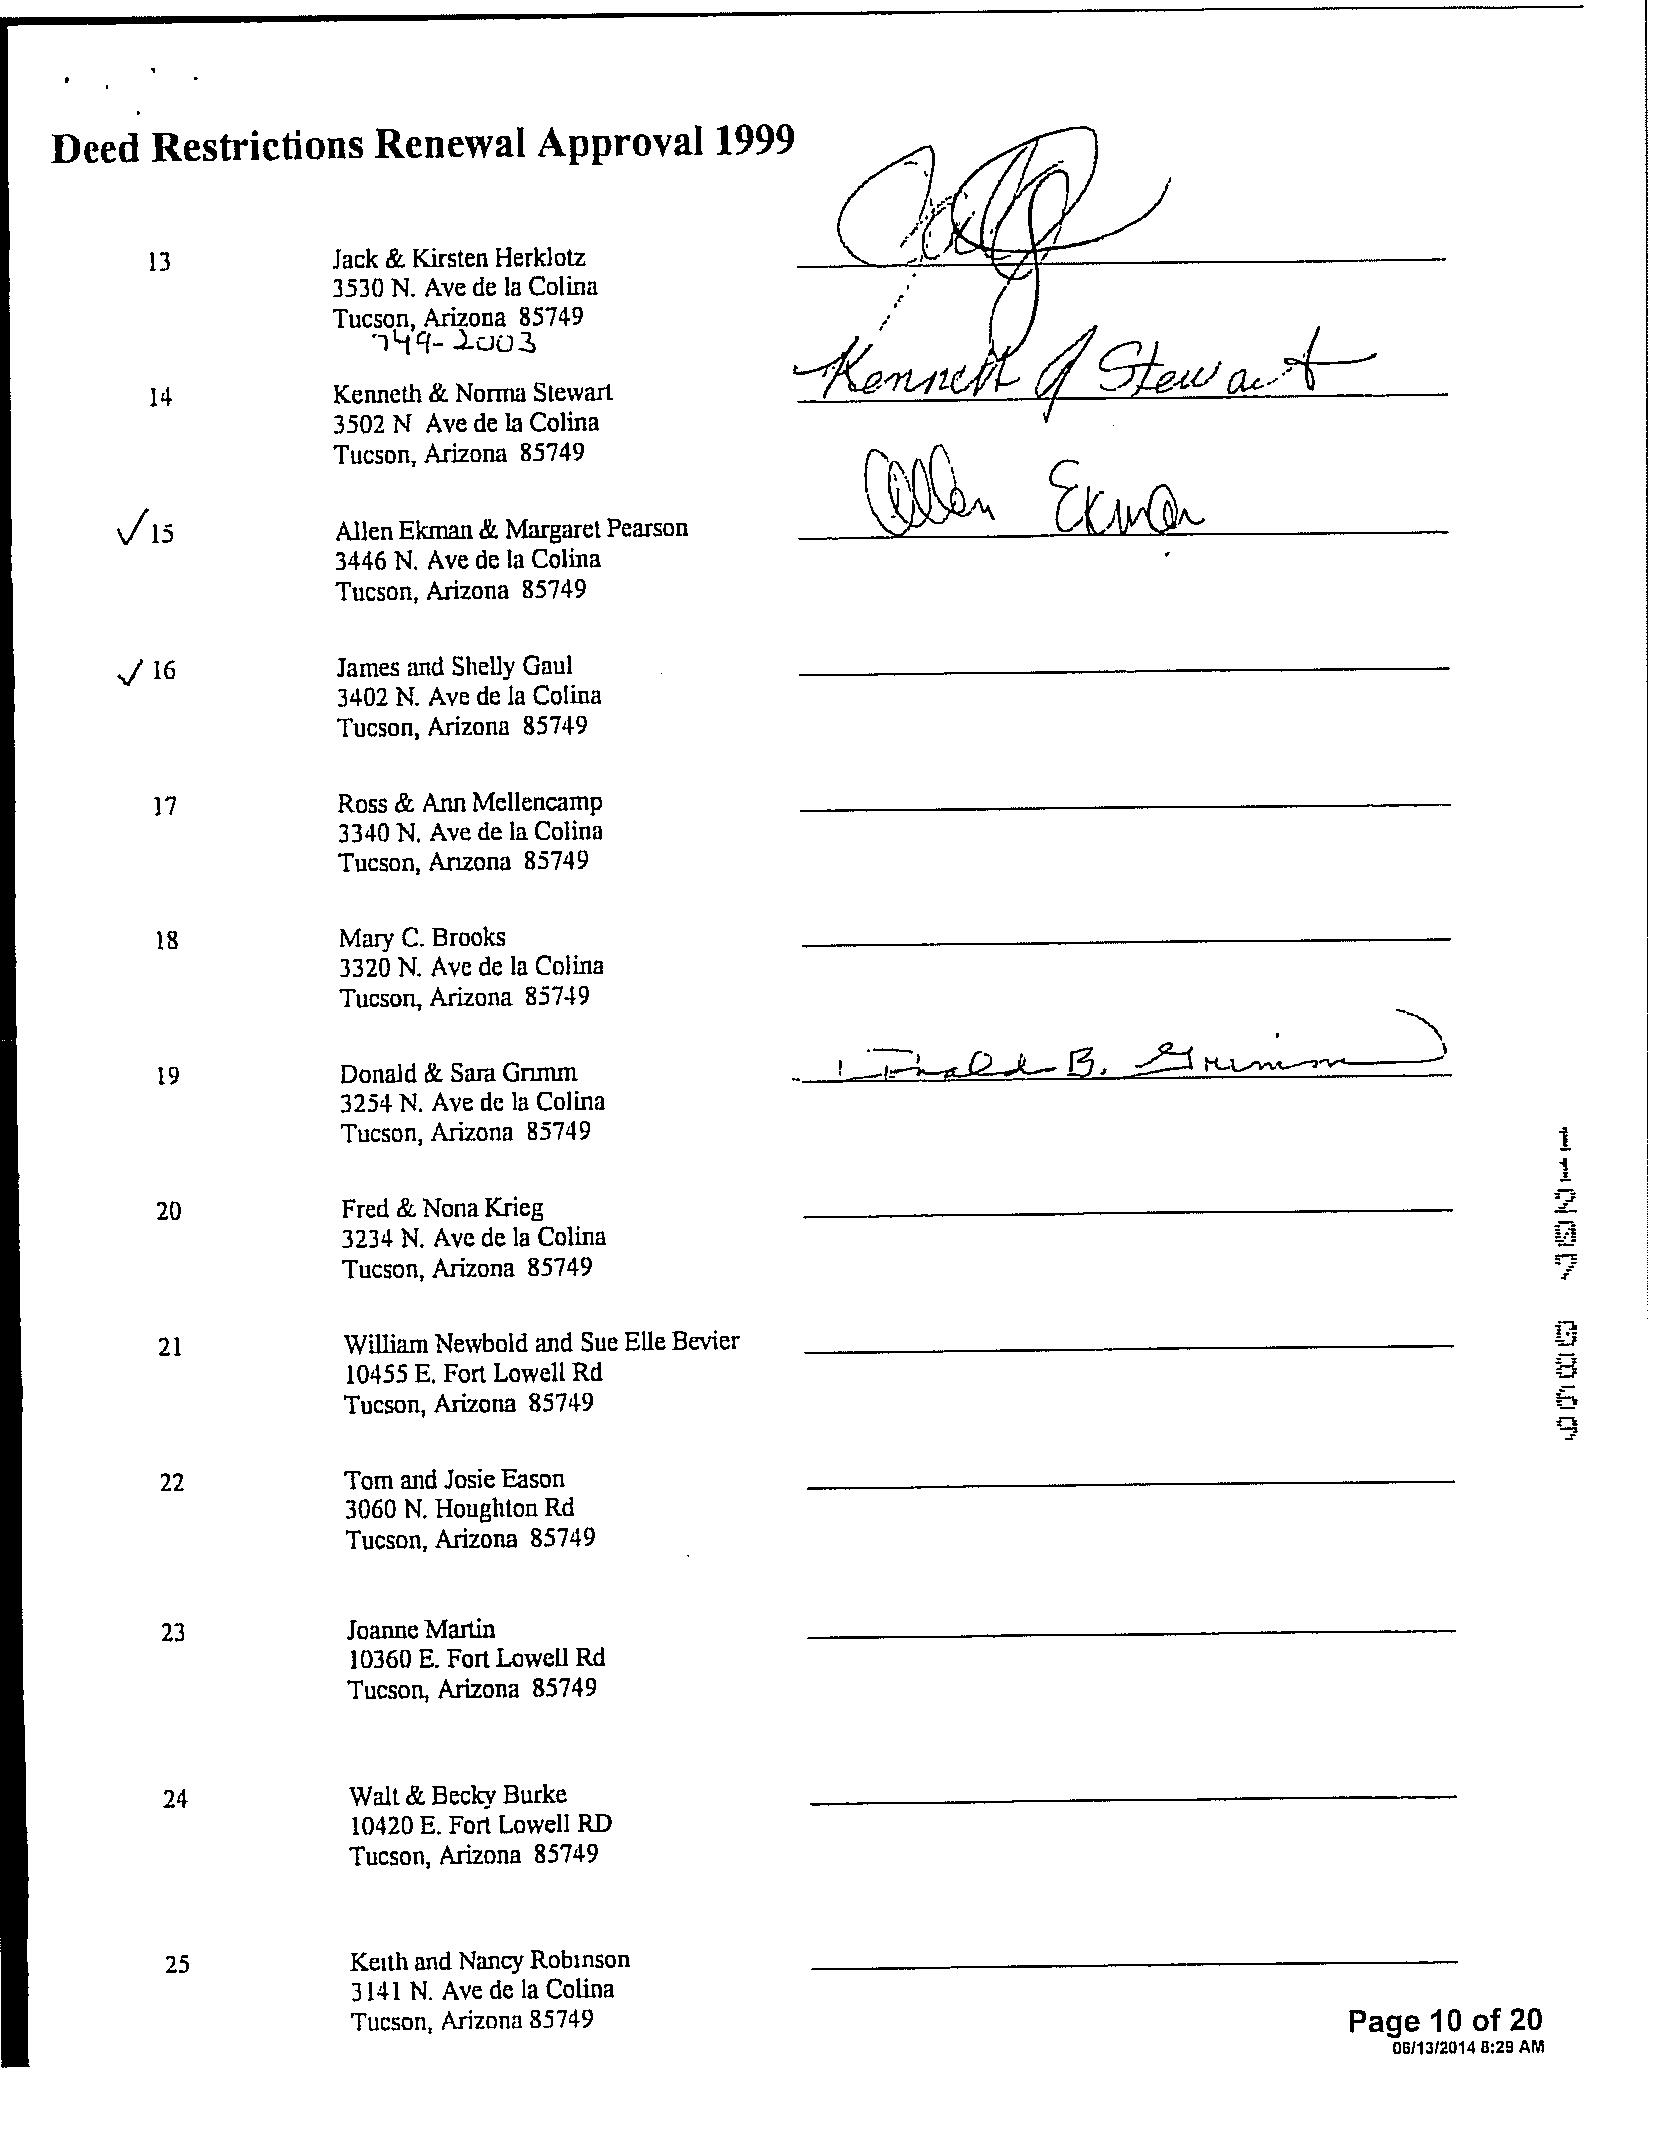 Deed Restrictions Renewal Approval 1999
13
Jack & Kirsten Herklotz
3530 N. Ave de la Colina
Tucson, Arizona 85749
749-2003
14
Kenneth & Norma Stewart
Kenneth J Stewart
3502 N Ave de la Colina
Tucson, Arizona 85749
✓ 15
Allen Ekman & Margaret Pearson
Allen Ekman
3446 N. Ave de la Colina
Tucson, Arizona 85749
✓ 16
James and Shelly Gaul
3402 N. Ave de la Colina
Tucson, Arizona 85749
17
Ross & Ann Mellencamp
3340 N. Ave de la Colina
Tucson, Arizona 85749
18
Mary C. Brooks
3320 N. Ave de la Colina
Tucson, Arizona 85749
19
Donald & Sara Grimm
Donald B. Grimm
3254 N. Ave de la Colina
Tucson, Arizona 85749
20
Fred & Nona Krieg
3234 N. Ave de la Colina
Tucson, Arizona 85749
21
William Newbold and Sue Elle Bevier
10455 E. Fort Lowell Rd
Tucson, Arizona 85749
22
Tom and Josie Eason
3060 N. Houghton Rd
Tucson, Arizona 85749
23
Joanne Martin
10360 E. Fort Lowell Rd
Tucson, Arizona 85749
24
Walt & Becky Burke
10420 E. Fort Lowell RD
Tucson, Arizona 85749
25
Keith and Nancy Robinson
3141 N. Ave de la Colina
Tucson, Arizona 85749
Page 10 of 20
06/13/2014 8:29 AM